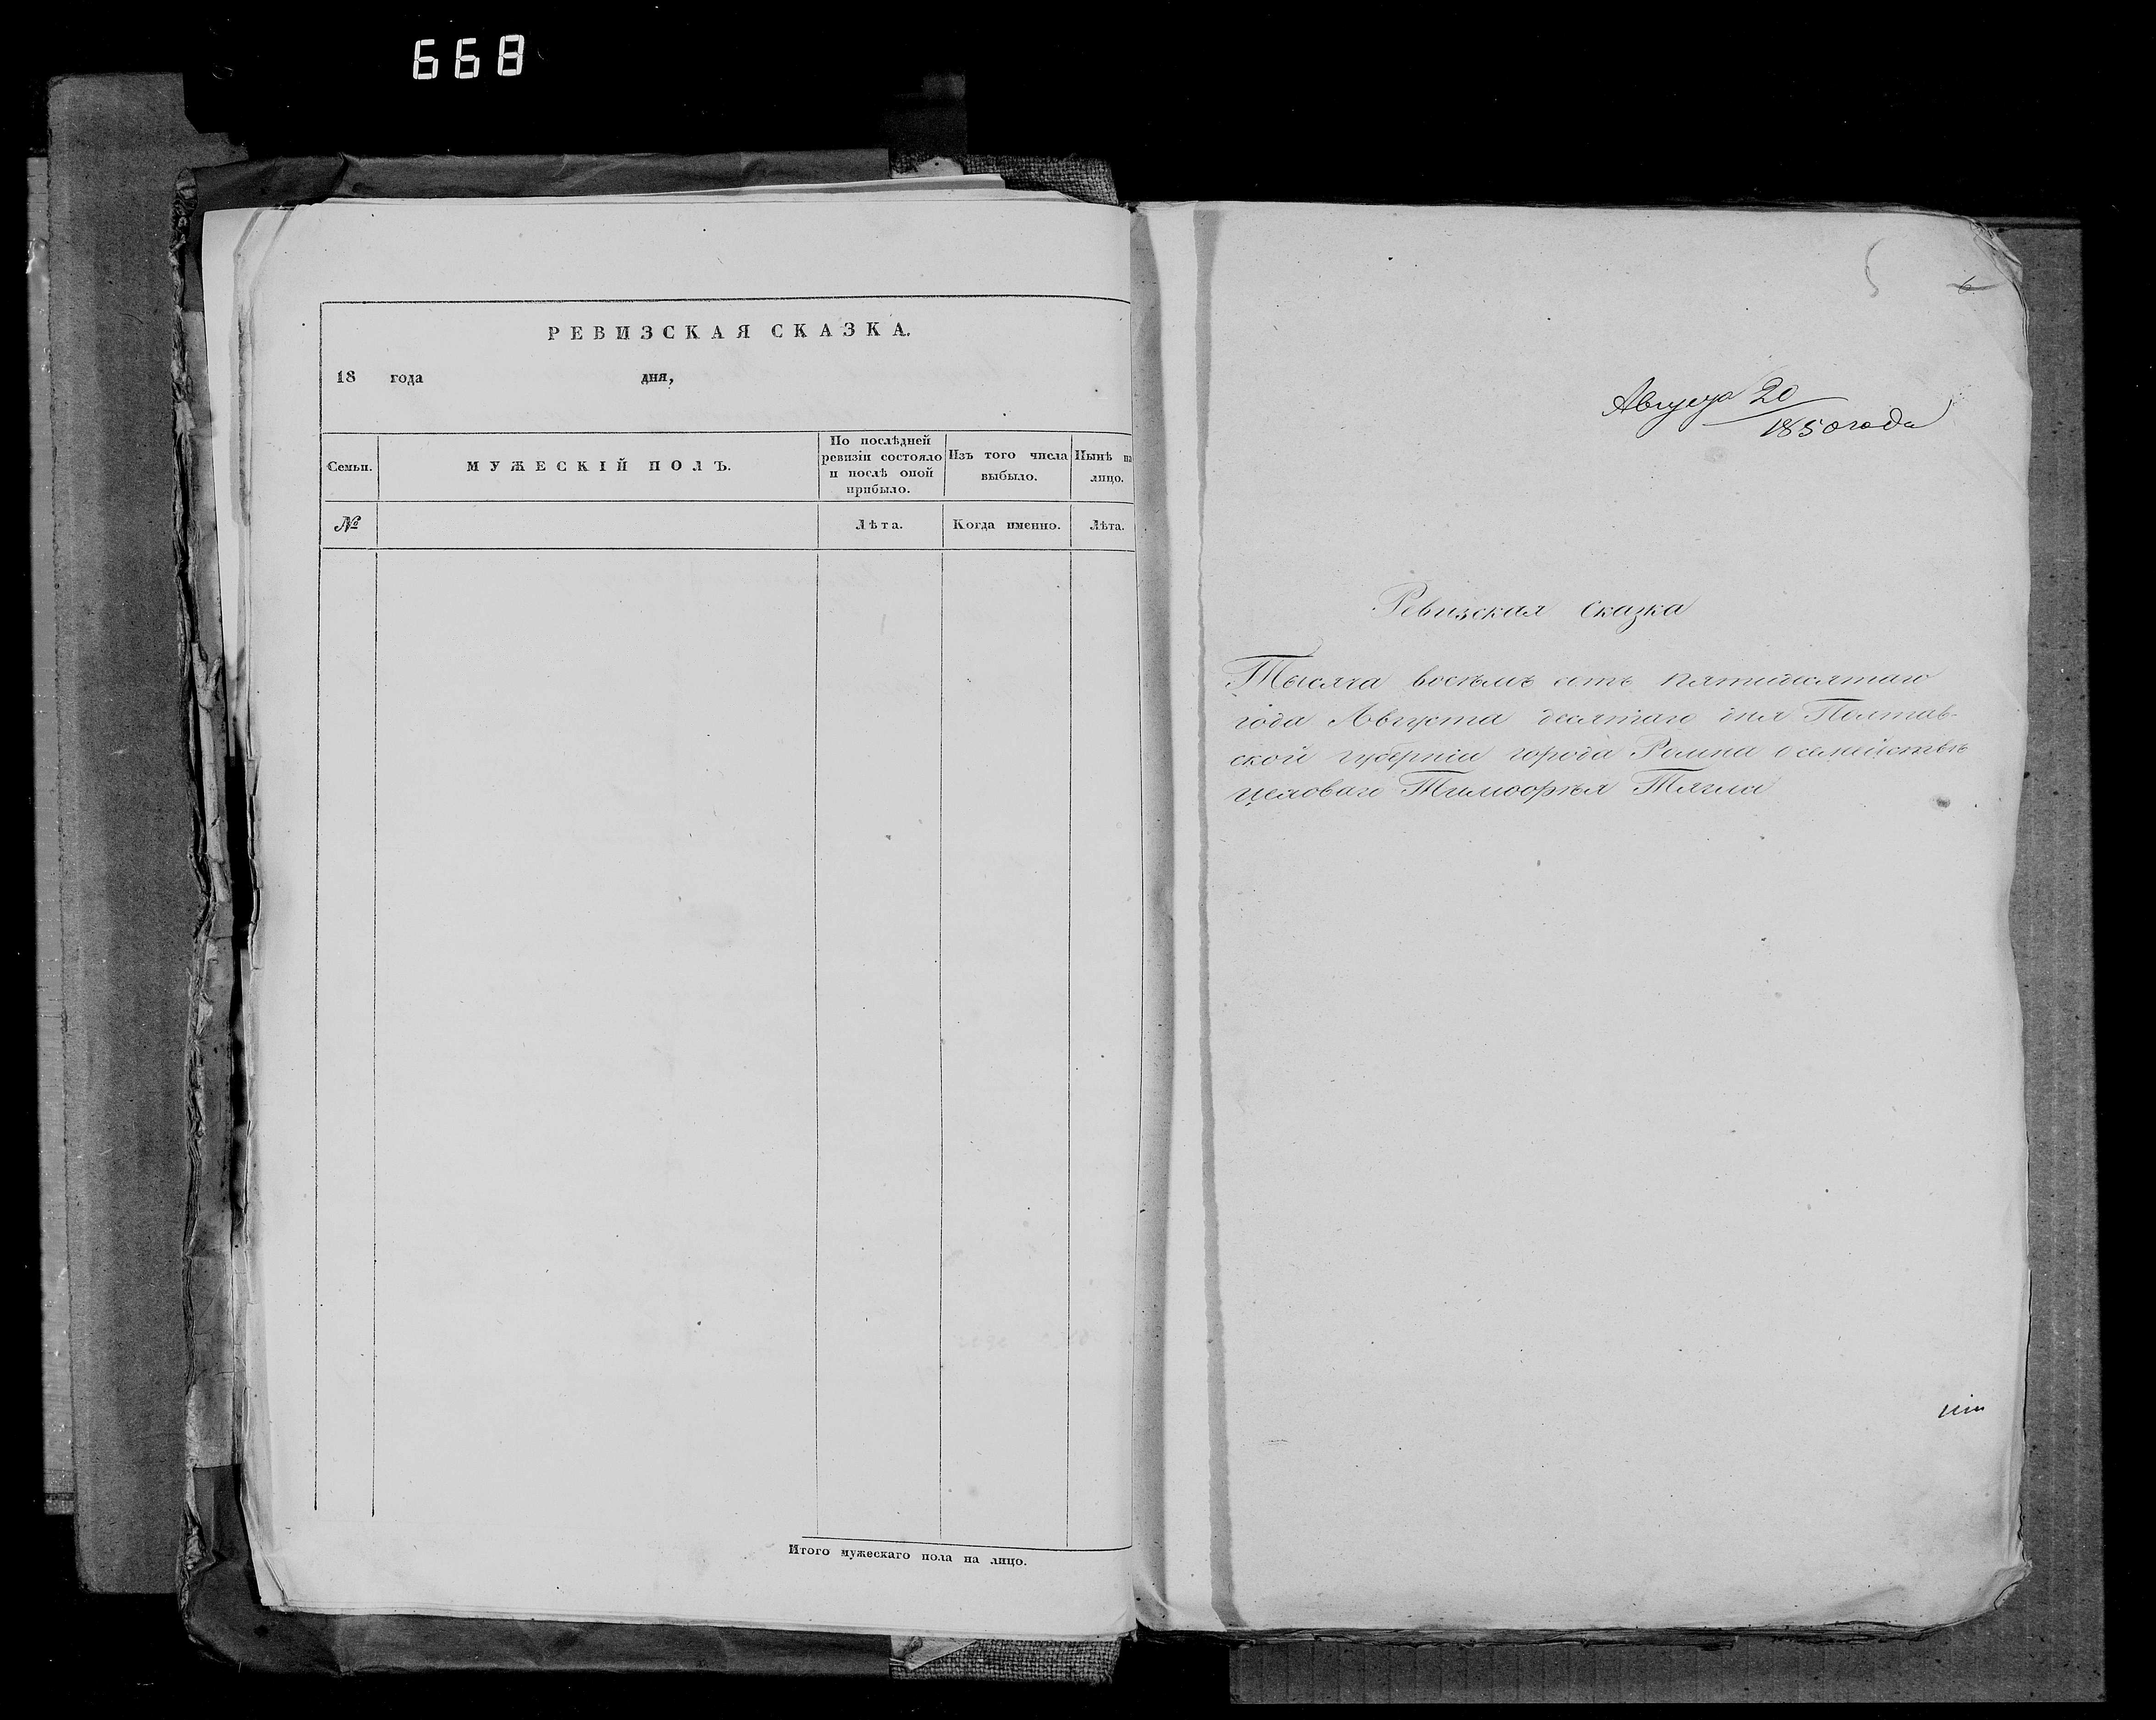 668
РЕВИЗСКАЯ СКАЗКА.
18 года дня,
Семьи.
МУЖЕСКІЙ ПОЛЪ.
По послѣдней ревизіи состояло и послѣ оной прибыло.
Изъ того числа выбыло.
Нынѣ на лицо.
№
Лѣта.
Когда именно.
Лѣта.
Итого мужескаго пола на лицо.
6
Августа 20
1850 года
Ревизская Сказка
Тысяча восемъ сотъ пятидесятаго
года Августа десятаго дня Полтав-
ской губерніи города Ромна о семействѣ
Тимофѣя Тягла